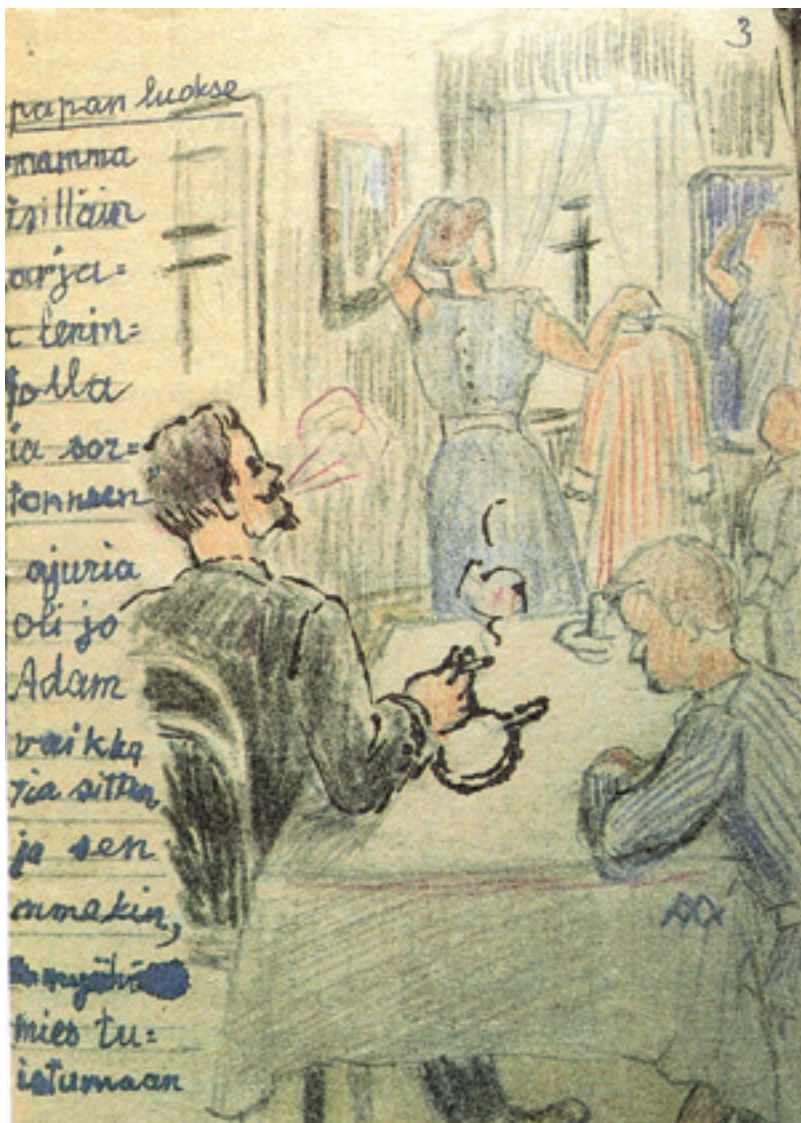 3
papan luokse
mamma
isilläin
arja=
lenin=
jolla
ia sor=
tonneen
ajuria
oli jo
Adam
vaikka
ria sitten,
ja sen
mmakin,
mies tu=
istumaan